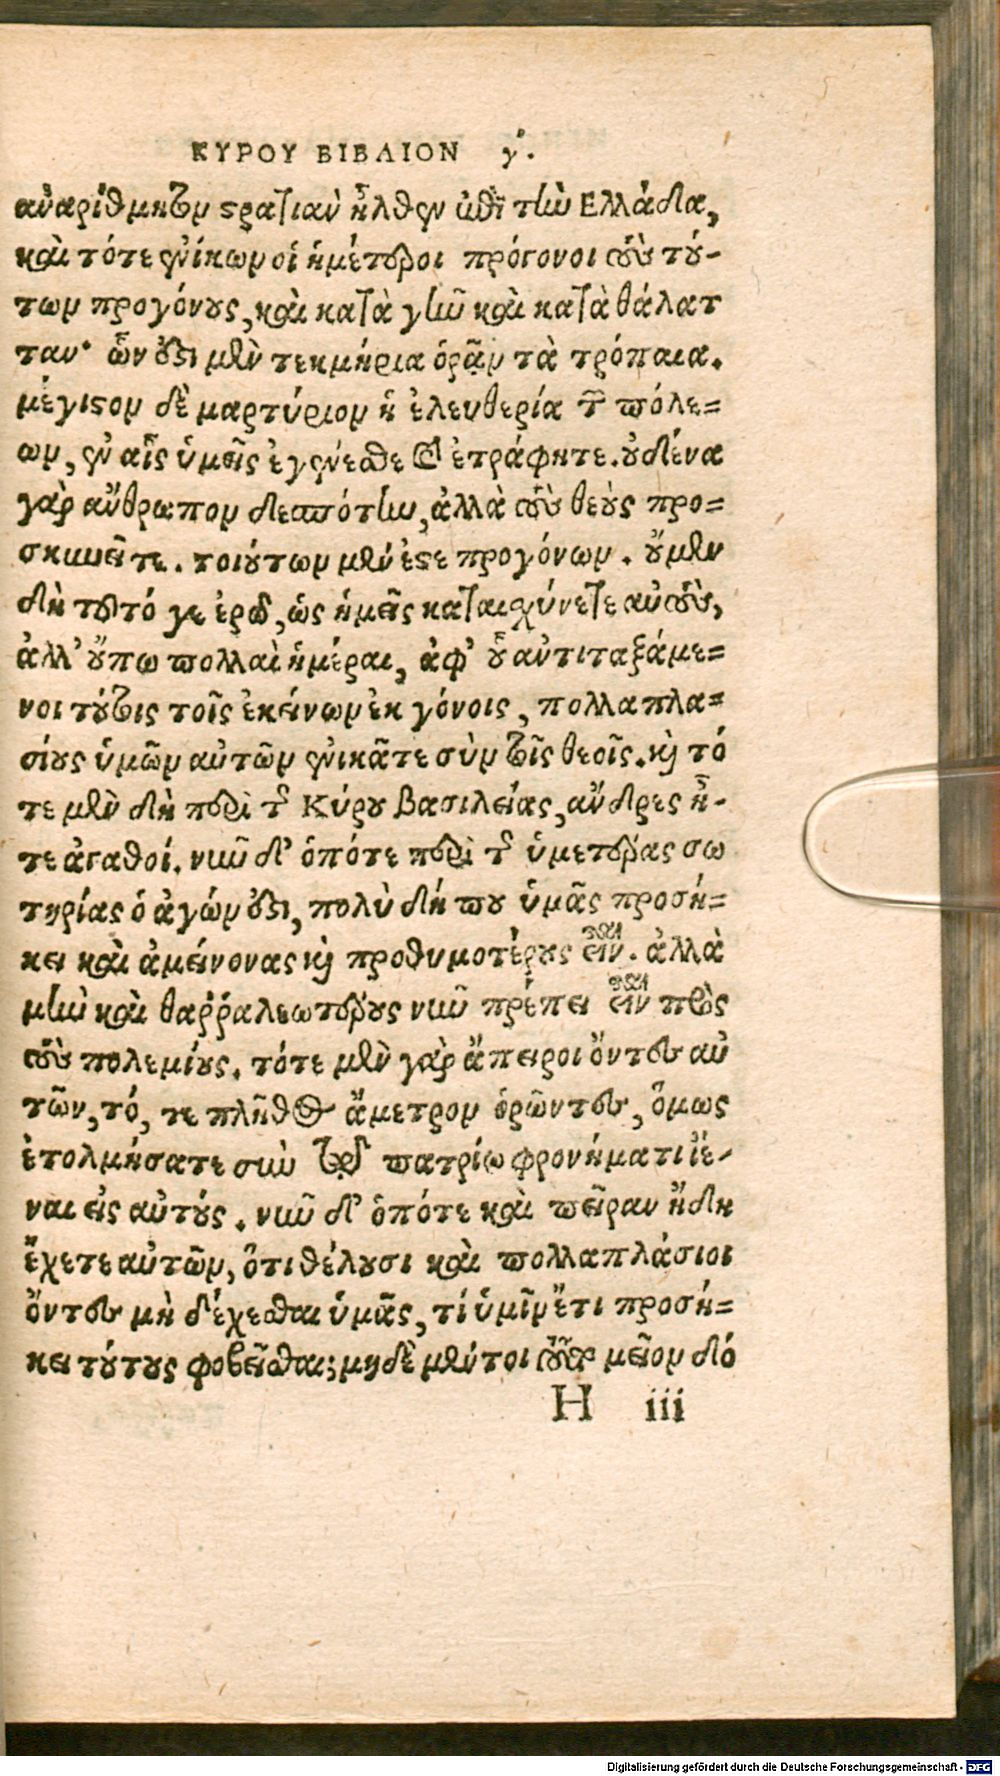 ΚΥΡΟΥ ΒΙΒΛΙΟΝ γ'.
ἀναρίθμητον στρατιὰν ἦλθεν ἐπὶ τὴν Ελλάδα,
καὶ τότε ἐνίκων οἱ ἡμέτεροι πρόγονοι τοὺς τού-
των προγόνους, καὶ κατὰ γῆν καὶ κατὰ θάλατ
ταν· ὧν ἔστι μὲν τεκμήρια ὁρᾷν τὰ τρόπαια.
μέγιστον δὲ μαρτύριον ἡ ἐλευθερία τῶν πόλε=
ων, ἐν αἷς ὑμεῖς ἐγένεσθε καὶ ἐτράφητε. οὐδένα
γὰρ ἄνθρωπον δεσπότην, ἀλλὰ τοὺς θεοὺς προ=
σκυνεῖτε. τοιούτων μέν ἐστε προγόνων. οὔ μὲν
δὴ τοῦτό γε ἐρῶ, ὡς ἡμεῖς καταισχύνετε αὐτοὺς,
ἀλλ' οὔπω πολλαὶ ἡμέραι, ἀφ' οὗ ἀντιταξάμε=
νοι τούτοις τοῖς ἐκείνων ἐκ γόνοις, πολλαπλα=
σίους ὑμῶν αὐτῶν ἐνικᾶτε σὺν τοῖς θεοῖς. καὶ τό
τε μὲν δὴ περὶ τῆς Κύρου βασιλείας, ἄνδρες ἦ-
τε ἀγαθοί. νῦν δ' ὁπότε περὶ τῆς ὑμετέρας σω
τηρίας ὁ ἀγών ἐστι, πολὺ δή που ὑμᾶς προσή=
κει καὶ ἀμείνονας καὶ προθυμοτέρους εἶναι. ἀλλὰ
μὴν καὶ θαῤῥαλεωτέρους νῦν πρέπει εἶναι πρὸς
τοὺς πολεμίους. τότε μὲν γὰρ ἄπειροι ὄντες αὐ
τῶν, τό, τε πλῆθος ἄμετρον ὁρῶντες, ὅμως
ἐτολμήσατε σὺν τῷ πατρίῳ φρονήματι ἰέ-
ναι εἰς αὐτούς. νῦν δ' ὁπότε καὶ πεῖραν ἤδη
ἔχετε αὐτῶν, ὅτι θέλουσι καὶ πολλαπλάσιοι
ὄντες μὴ δέχεσθαι ὑμᾶς, τί ὑμῖν ἔτι προσή=
κει τούτους φοβεῖσθαι; μηδὲ μέντοι μεῖον δό
H iii
Digitalisierung gefördert durch die Deutsche Forschungsgemeinschaft - DFG